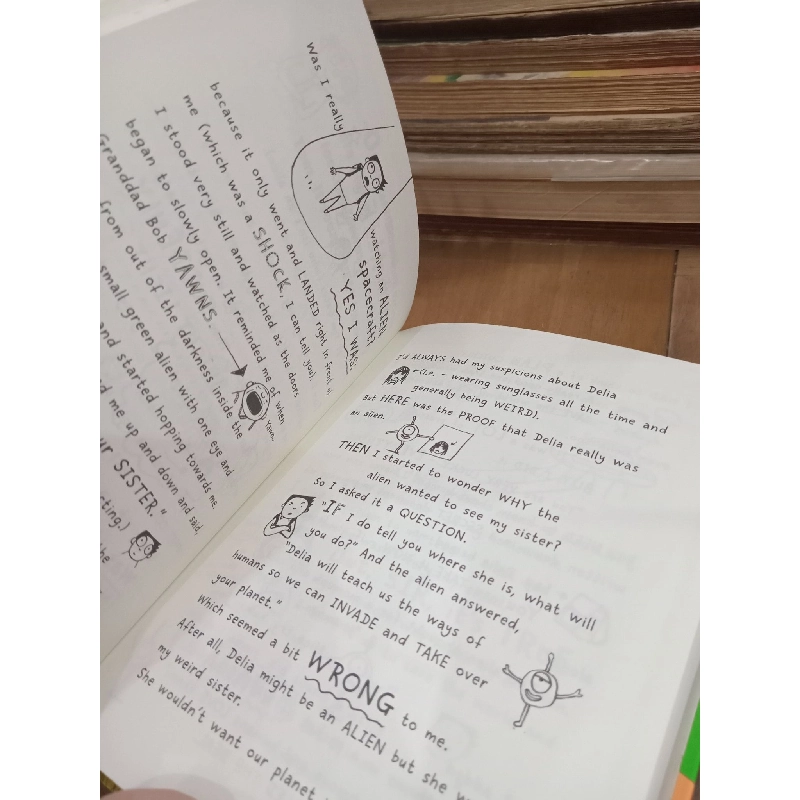 Was I really
watching an ALIEN
spacecraft?
YES I WAS
because it only went and LANDED right in front of
me (which was a SHOCK, I can tell you).
I stood very still and watched as the doors
began to slowly open. It reminded me of when
Granddad Bob YAWNS.
Yawn.
from out of the darkness inside the
small green alien with one eye and
and started hopping towards me.
me up and down and said,
SISTER."
I'd ALWAYS had my suspicions about Delia
(i.e. - wearing sunglasses all the time and
generally being WEIRD).
But HERE was the PROOF that Delia really was
an alien.
THEN I started to wonder WHY the
alien wanted to see my sister?
So I asked it a QUESTION.
"IF I do tell you where she is, what will
you do?" And the alien answered,
"Delia will teach us the ways of
humans so we can INVADE and TAKE over
your planet."
Which seemed a bit WRONG to me.
After all, Delia might be an ALIEN but she
my weird sister.
She wouldn't want our planet